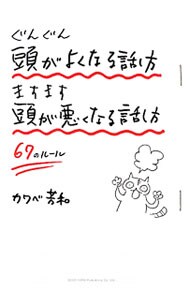 ぐんぐん
頭がよくなる話し方
ますます
頭が悪くなる話し方
67のルール
カワベ芳和